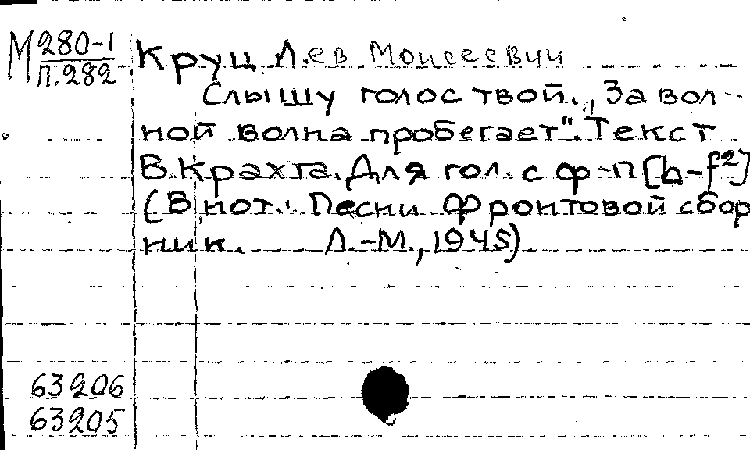 М 280-1 Круц Лев Моисеевич
П.282
Слышу голос твой. „За вол-
ной волна пробегает". Текст
В.Крахта. Для гол. с ф-п [h-f²]
(В нот.: Песни фронтовой сбор
ник. Л.-М., 1945)
63206
63205